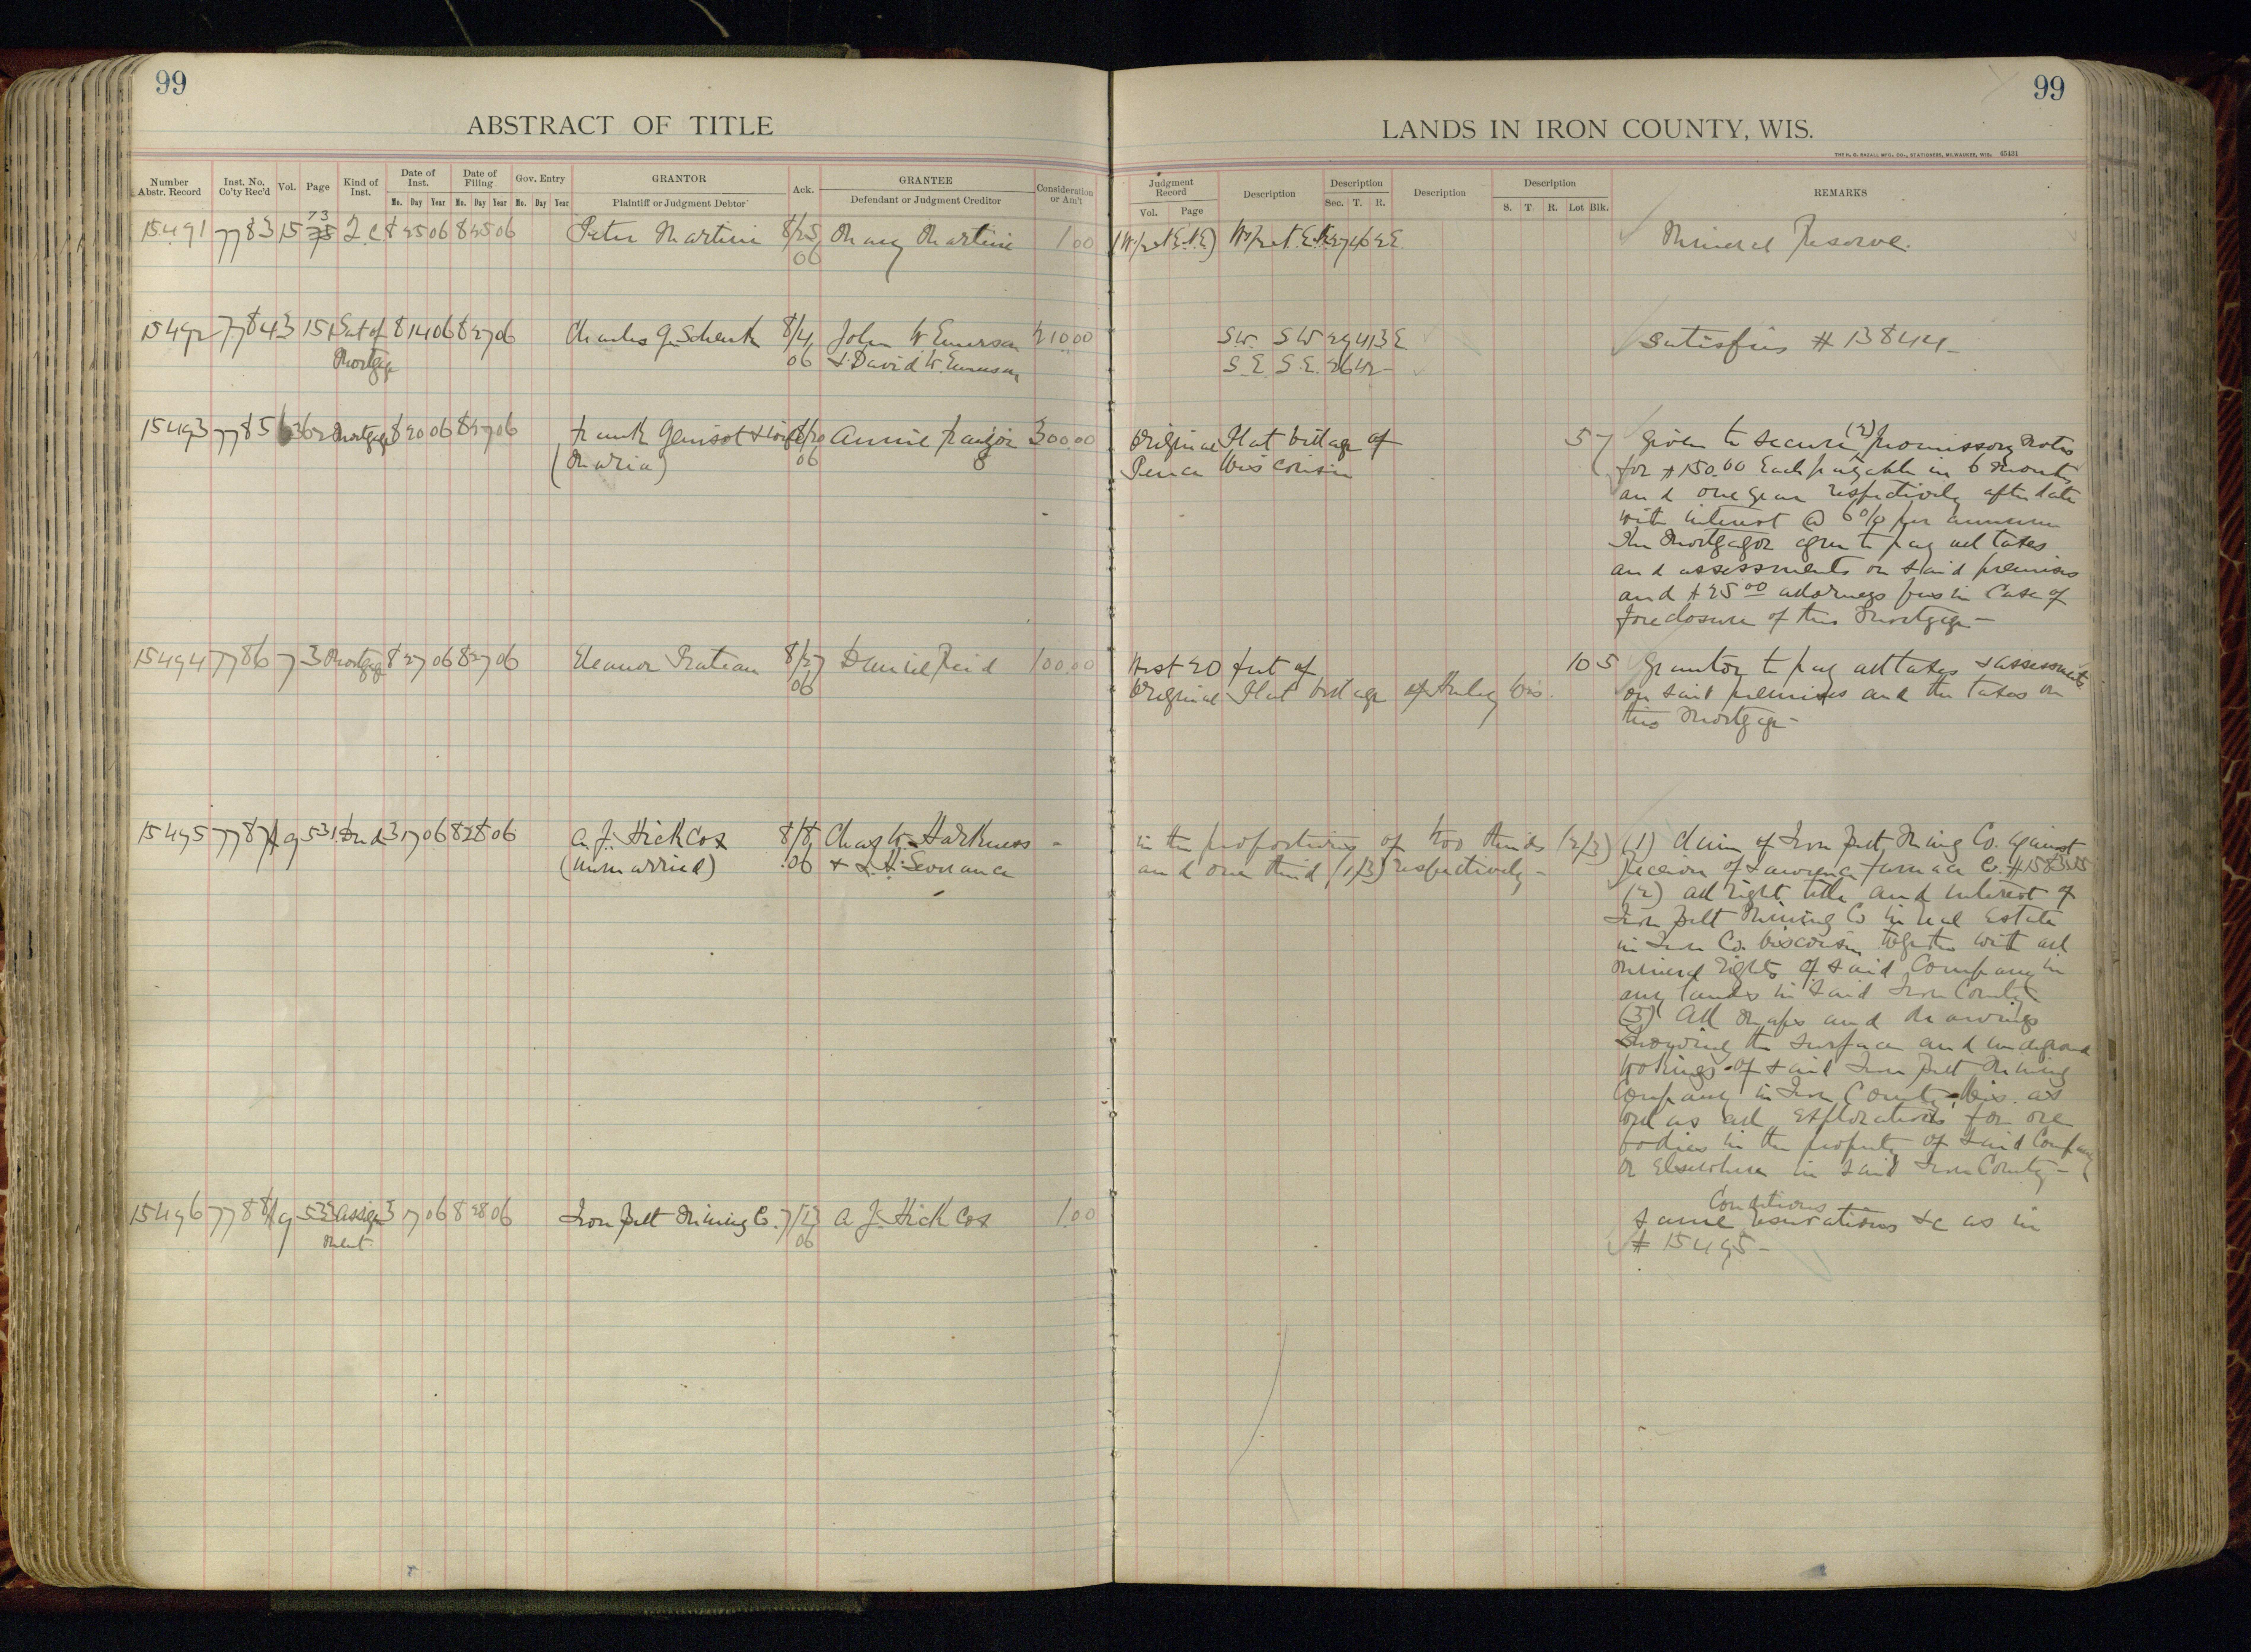 99
99
ABSTRACT OF TITLE
LANDS IN IRON COUNTY, WIS.
THE H. G. RAZALL MFG. CO., STATIONERS, MILWAUKEE, WIS. 45431
Number Abstr. Record
Inst. No. Co'ty Rec'd
Vol.
Page
Kind of Inst.
Date of Inst.
Date of Filing
Gov. Entry
Mo. Day Year Mo. Day Year Mo. Day Year
GRANTOR
Plaintiff or Judgment Debtor
Ack.
GRANTEE
Defendant or Judgment Creditor
Consideration or Am't
Judgment Record
Vol. Page
Description
Description
Sec. T. R.
Description
Description
S. T. R. Lot Blk.
REMARKS
15491 7783 15 73 Q.C. 8 25 06 8 25 06 Peter Martini 8/25 06 Mary Martini 1 00
Mineral Reserve.
15492 7784 3 151 Sat of 8 14 06 8 27 06 Charles G. Schenk 8/4 John W Emerson 210 00 SW. SW 29 41 3 E Satisfies # 13844
Mortgage 06 & David W. Emerson S.E. S.E. 26 42
15493 7785 6 362 Mortgage 8 20 06 8 27 06 Frank Genisot & Wife 8/20 Annie 300 00 Original Plat Village of 5 7 given to secure (2) promissory notes
(Maria) 06 Pence Wisconsin for $150.00 Each payable in 6 months
and one year respectively after date
with interest @ 6% per annum
The Mortgagor agree to pay all taxes
and assessments on said premises
and $25 00 attorneys fees in Case of
foreclosure of this Mortgage —
15494 7786 7 3 Mortgage 8 27 06 8 27 06 Eleanor 8/27 Daniel Reid 100 00 West 20 feet of 10 5 Grantor to pay all taxes & assessments
06 Original Plat Village of Hurley Wis. on said premises and the taxes on
this Mortgage —
15495 7787 9 531 Deed 3 17 06 8 28 06 A. J. Hickcox 8/8 Chas W. Harkness in the proportions of two thirds (2/3) (1) Claim of Iron Belt Mining Co. against
(unmarried) 06 & L. H. Severance and one third (1/3) respectively — Receiver of Furnace Co.
(2) all right title and interest of
Iron Belt Mining Co in real Estate
in Iron Co. Wisconsin together with all
mineral rights of said Company in
any lands in said Iron County
(3) All maps and drawings
showing the surface and underground
workings of said Iron Belt Mining
Company in Iron County Wis. as
well as all explorations for ore
bodies in the property of said Company
or Elsewhere in said Iron County —
15496 7788 9 533 Assign 3 17 06 8 28 06 Iron Belt Mining Co. 7/13 A. J. Hickcox 1.00 Conditions
ment 06 same reservations &c as in
# 15495 —